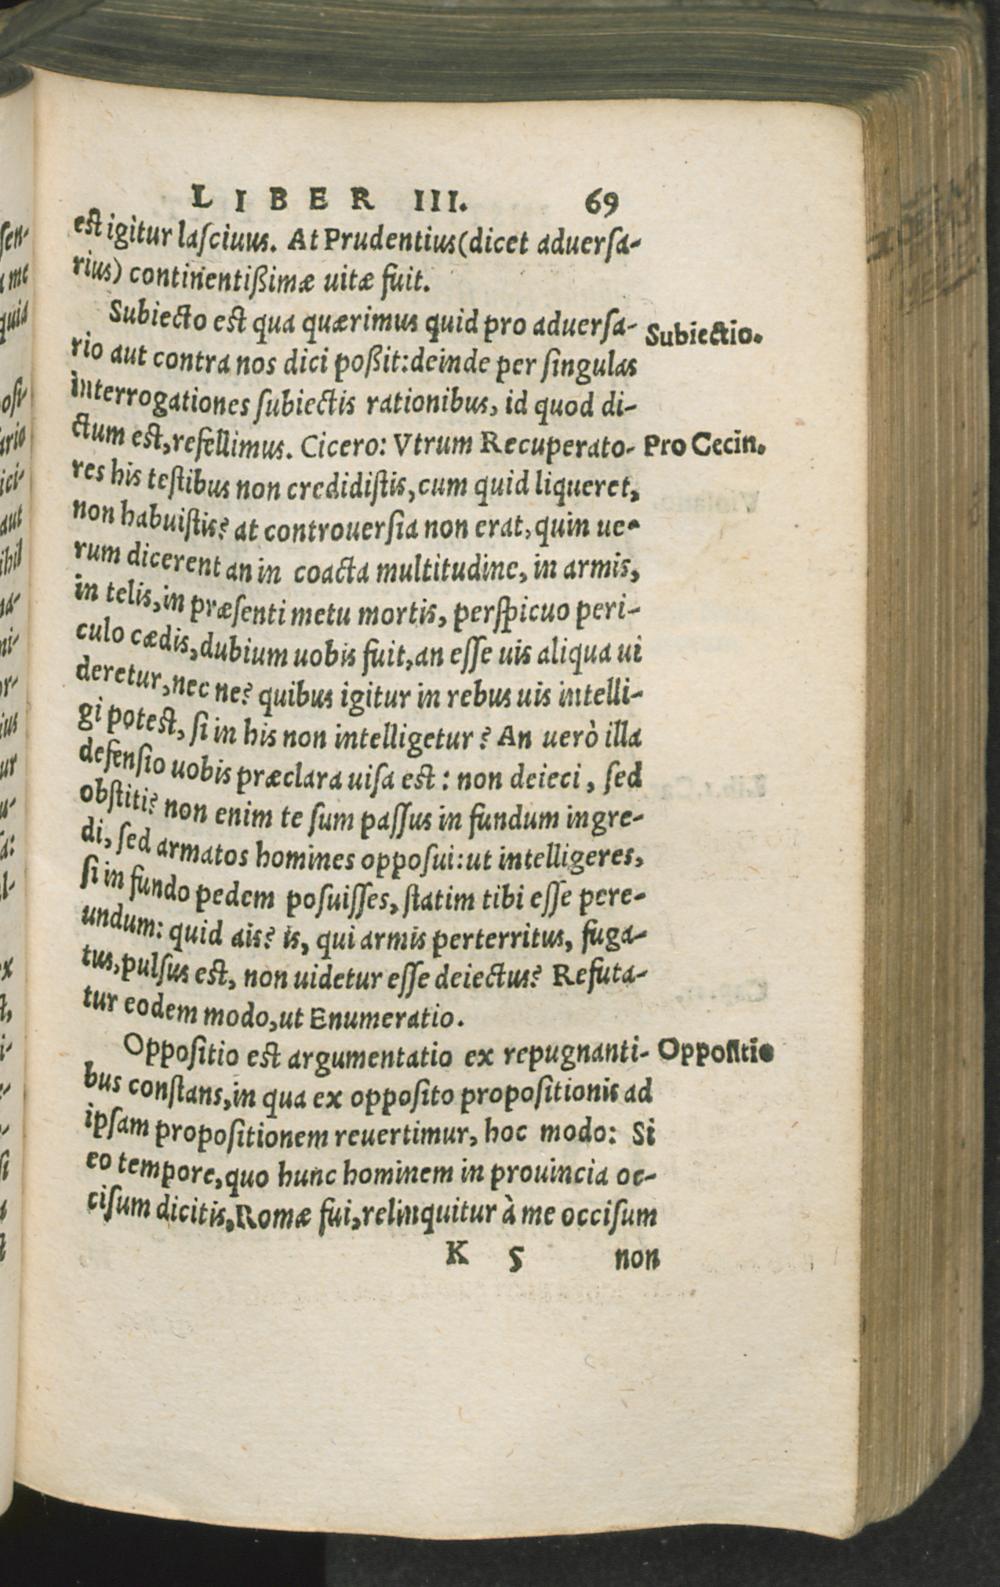 LIBER III. 69
est igitur lasciuus. At Prudentius (dicet aduersa-
rius) continentißimæ uitæ fuit.
Subiecto est qua quærimus quid pro aduersa-
Subiectio.
rio aut contra nos dici poßit: deinde per singulas
interrogationes subiectis rationibus, id quod di-
ctum est, refellimus. Cicero: Vtrum Recuperato-
Pro Cecin.
res his testibus non credidistis, cum quid liqueret,
non habuistis? at controuersia non erat, quin ue-
rum dicerent an in coacta multitudine, in armis,
in telis, in præsenti metu mortis, perspicuo peri-
culo cædis, dubium uobis fuit, an esse uis aliqua ui
deretur, nec ne? quibus igitur in rebus uis intelli-
gi potest, si in his non intelligetur? An uerò illa
defensio uobis præclara uisa est: non deieci, sed
obstiti? non enim te sum passus in fundum ingre-
di, sed armatos homines opposui: ut intelligeres,
si in fundo pedem posuisses, statim tibi esse pere-
undum: quid ais? is, qui armis perterritus, fuga-
tus, pulsus est, non uidetur esse deiectus? Refuta-
tur eodem modo, ut Enumeratio.
Oppositio est argumentatio ex repugnanti-
Oppositio
bus constans, in qua ex opposito propositionis ad
ipsam propositionem reuertimur, hoc modo: Si
eo tempore, quo hunc hominem in prouincia oc-
cisum dicitis, Romæ fui, relinquitur à me occisum
K 5 non